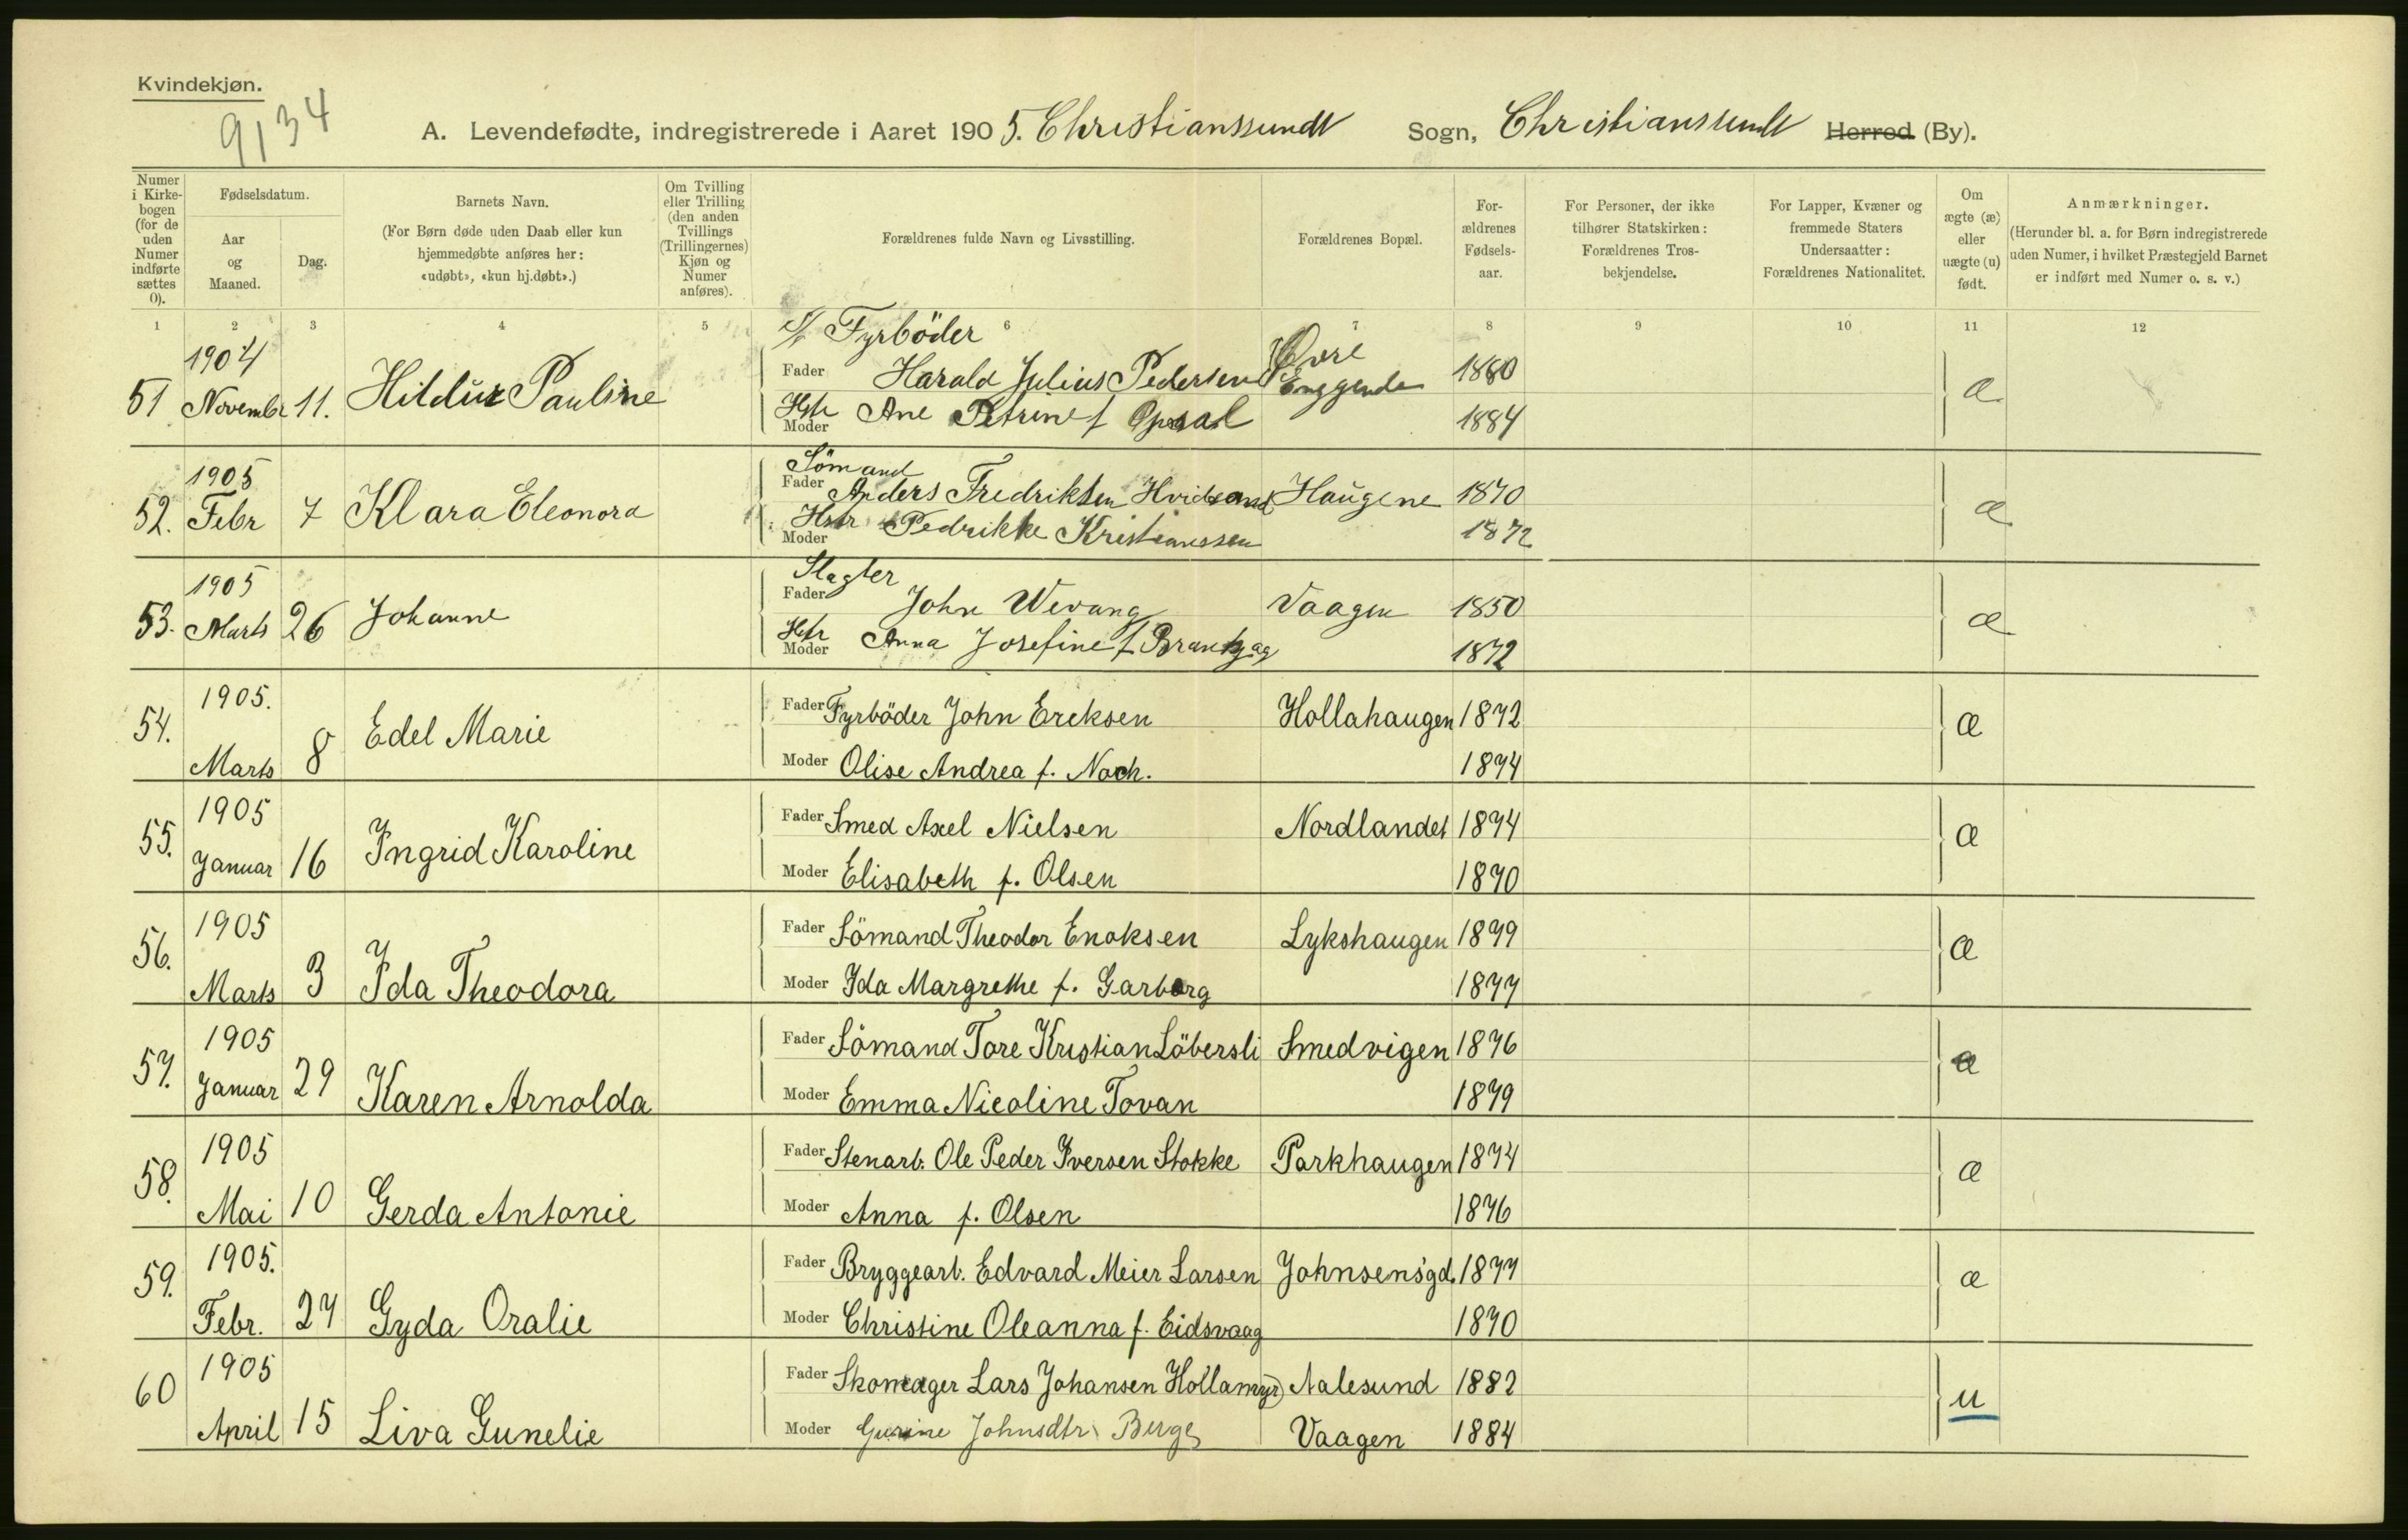 Kvindekjøn.
9134
A. Levendefødte, indregistrerede i Aaret 1905. Christianssundt Sogn, Christianssundt Herred (By).
Numer i Kirkebogen (for de uden Numer indførte sættes 0).
Fødselsdatum.
Aar og Maaned.
Dag.
Barnets Navn.
(For Børn døde uden Daab eller kun hjemmedøbte anføres her: «udøbt», «kun hj.døbt».)
Om Tvilling eller Trilling (den anden Tvillings (Trillingernes) Kjøn og Numer anføres).
Forældrenes fulde Navn og Livsstilling.
Forældrenes Bopæl.
Forældrenes Fødselsaar.
For Personer, der ikke tilhører Statskirken: Forældrenes Trosbekjendelse.
For Lapper, Kvæner og fremmede Staters Undersaatter: Forældrenes Nationalitet.
Om ægte (æ) eller uægte (u) født.
Anmærkninger.
(Herunder bl. a. for Børn indregistrerede uden Numer, i hvilket Præstegjeld Barnet er indført med Numer o. s. v.)
1 2 3 4 5 6 7 8 9 10 11 12
Fyrböder
1904
51 Novembr 11. Hildur Pauline
Fader Harald Julius Pedersen Övre Enggende 1880 æ
Hstr Moder Ane Petrine f Opsal 1884
1905
52. Febr 7 Klara Eleonora
Sömand
Fader Anders Fredriksen Hvidsand Haugene 1870 æ
Hstr Moder Pedrikke Kristianssen 1872
1905
53. Marts 26 Johanne
Slagter
Fader John Wevang Vaagen 1850 æ
Hstr Moder Anna Josefine f 1872
1905.
54. Marts 8 Edel Marie
Fader Fyrböder John Ereksen Hollahaugen 1872 æ
Moder Olise Andrea f. Noch. 1874
1905
55. Januar 16 Ingrid Karoline
Fader Smed Axel Nielsen Nordlandet 1874 æ
Moder Elisabeth f. Olsen 1870
1905
56. Marts 3 Ida Theodora
Fader Sömand Theodor Enoksen Lykshaugen 1879 æ
Moder Ida Margrethe f. Garborg 1877
1905
57. Januar 29 Karen Arnolda
Fader Sömand Tore Kristian Löbersli Smedvigen 1876 æ
Moder Emma Nicoline Tovan 1879
1905
58. Mai 10 Gerda Antonie
Fader Stenarb. Ole Peder Iversen Stokke Parkhaugen 1874 æ
Moder Anna f. Olsen 1876
1905.
59. Febr. 27 Gyda Oralie
Fader Bryggearb. Edvard Meier Larsen Johnsens'gd. 1877 æ
Moder Christine Oleanna f. Eidsvaag 1870
1905
60 April 15 Liva Gunelie
Fader Skomager Lars Johansen Hollamyr Aalesund 1882 u
Moder Gurine Johnsdtr Berge Vaagen 1884